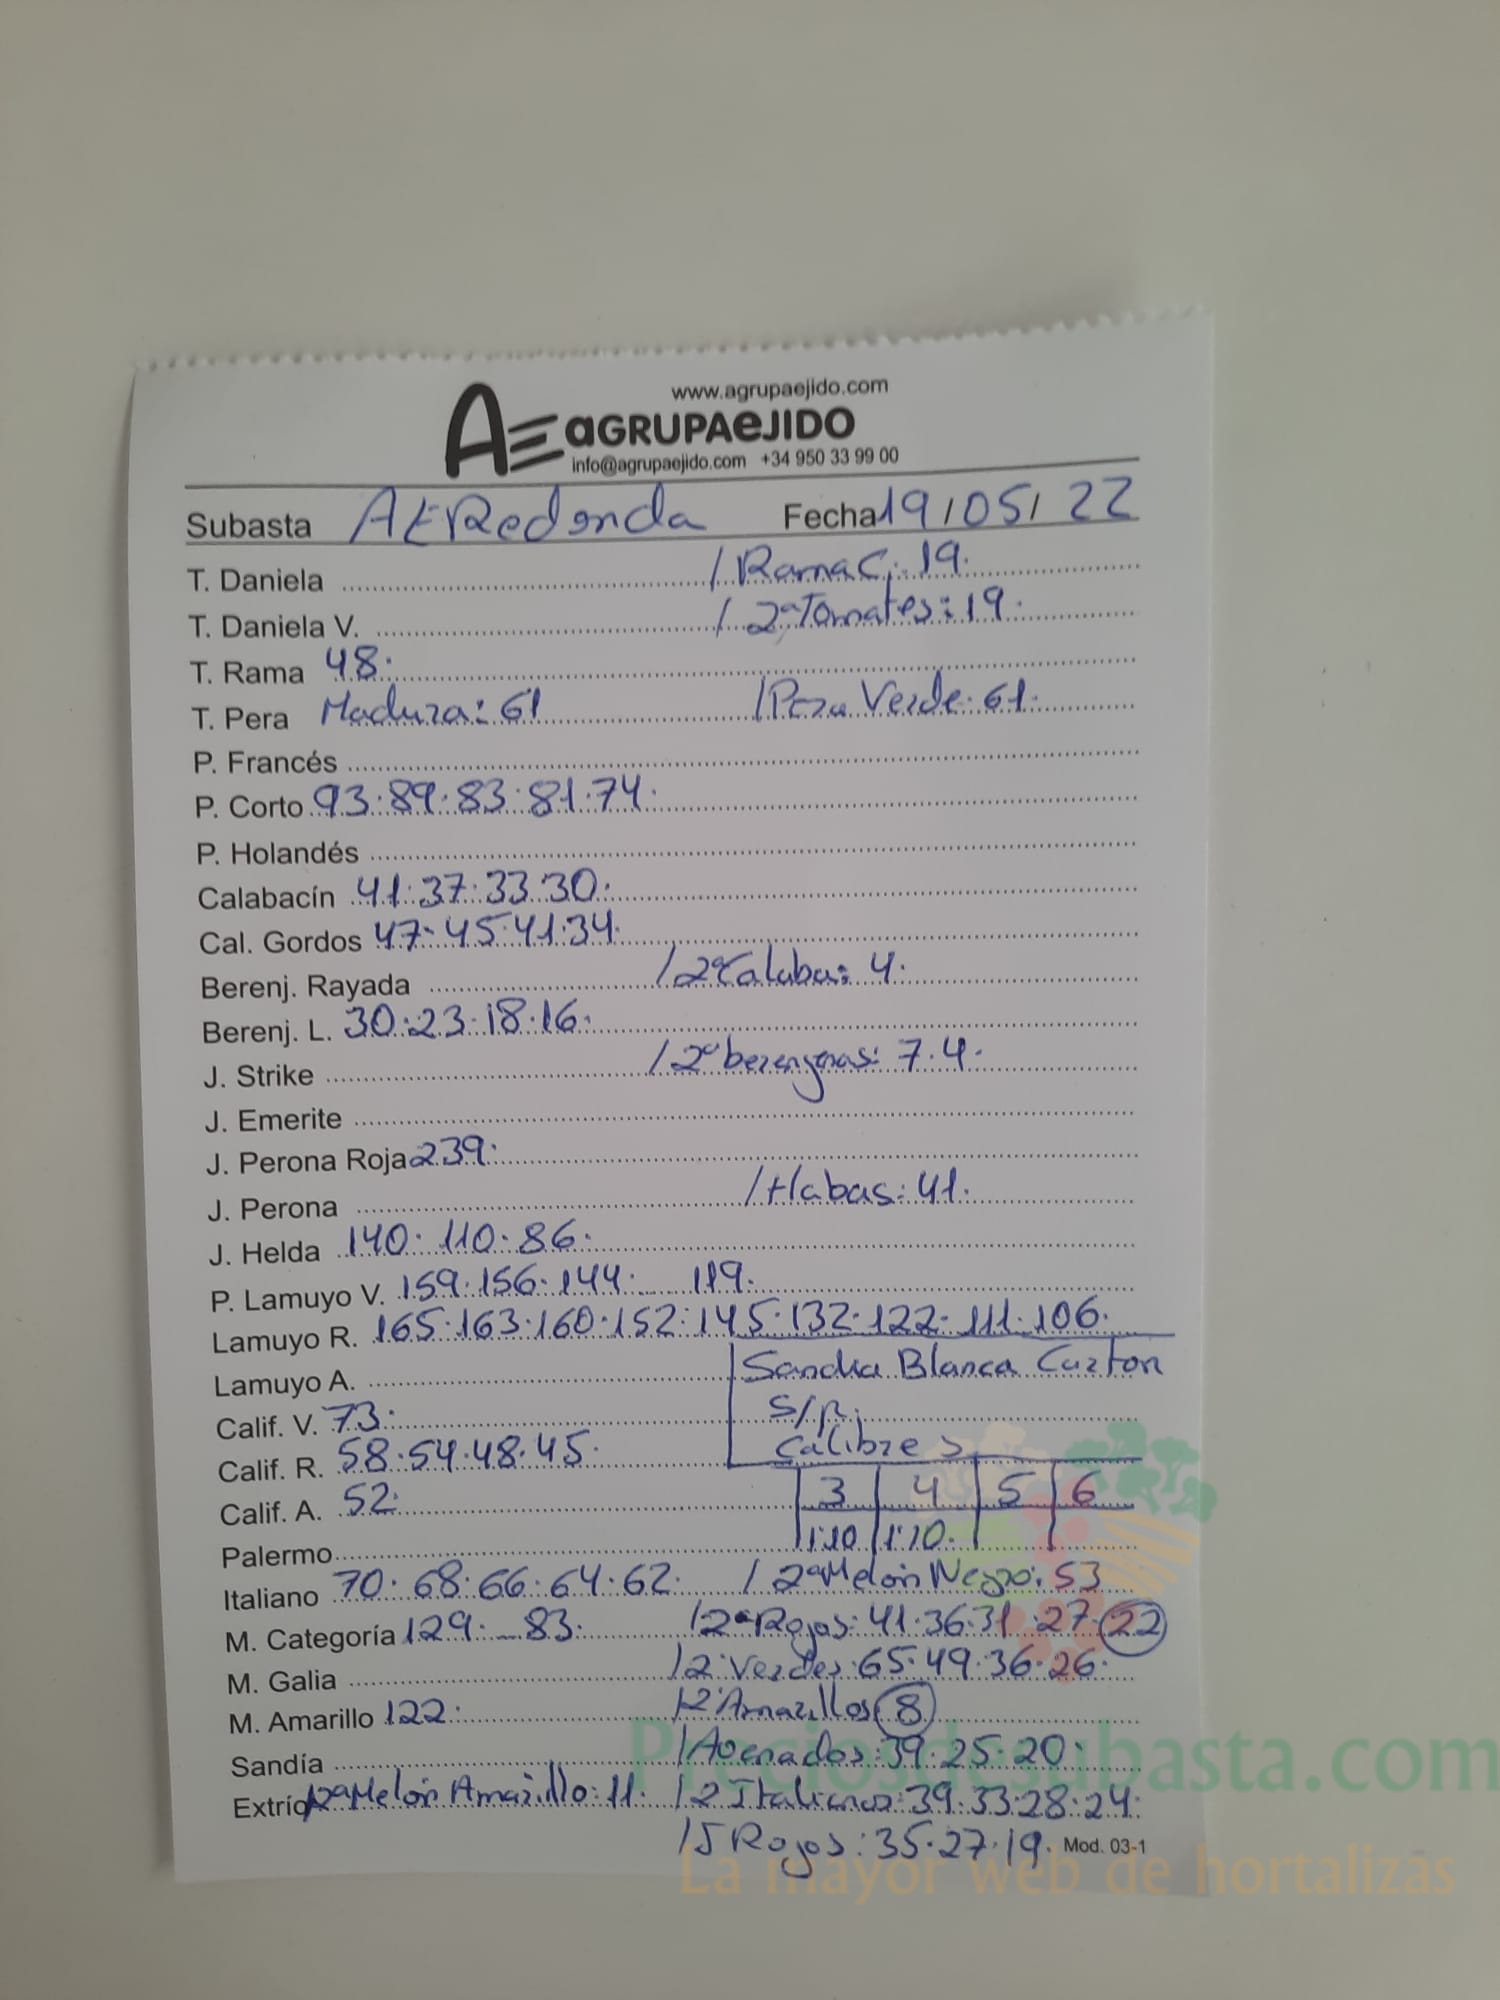 www.agrupaejido.com
AE aGRUPAeJIDO
info@agrupaejido.com +34 950 33 99 00
Subasta AERedonda Fecha 19/05/22
T. Daniela / Rama C: 19.
T. Daniela V. / 2ª Tomates: 19.
T. Rama 48.
T. Pera Madura: 61 / Pera Verde. 61.
P. Francés
P. Corto 93.89.83.81.74.
P. Holandés
Calabacín 41.37.33.30.
Cal. Gordos 47.45.41.34.
Berenj. Rayada / 2ª Calaba: 4.
Berenj. L. 30.23.18.16.
J. Strike / 2ª berenjenas: 7.4.
J. Emerite
J. Perona Roja 239.
J. Perona / Habas: 41.
J. Helda 140.110.86.
P. Lamuyo V. 159.156.144. 119.
Lamuyo R. 165.163.160.152.145.132.122.111.106.
Lamuyo A. Sandia Blanca Carton
Calif. V. 73. S/p.
Calif. R. 58.54.48.45. Calibres
Calif. A. 52. 3 4 5 6
Palermo 1'10 1'10.
Italiano 70.68.66.64.62. / 2ª Melón Negro: 53
M. Categoría 129. __83. / 2ª Rojos: 41.36.31.27.22
M. Galia / 2ª Verdes: 65.49.36.26.
M. Amarillo 122. / 2ª Amarillos 8
Sandía / Asenados: 39.25.20.
Extrío / 2ª Melón Amarillo: 11. / 2 Italianos: 39.33.28.24.
/ J Rojos: 35.27.19. Mod. 03-1
Preciosdesubasta.com
La mayor web de hortalizas